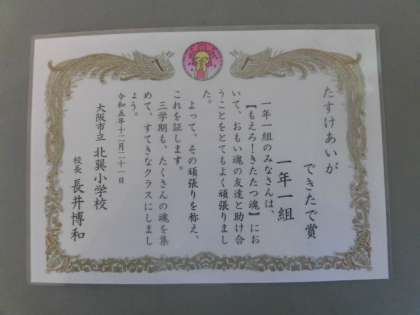 たすけあいが
できたで賞
一年一組
一年一組のみなさんは、
【もえろ！きたたつ魂】にお
いて、おもい魂の友達と助け合
うことをとてもよく頑張りまし
た。
よって、その頑張りを称え、
これを証します。
三学期も、たくさんの魂を集
めて、すてきなクラスにしまし
ょう。
令和五年十二月二十一日
大阪市立 北巽小学校
校長 長井博和